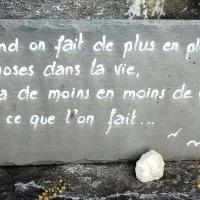 on fait de plus en
dans la vie,
de moins en moins de
ce que l'on fait...